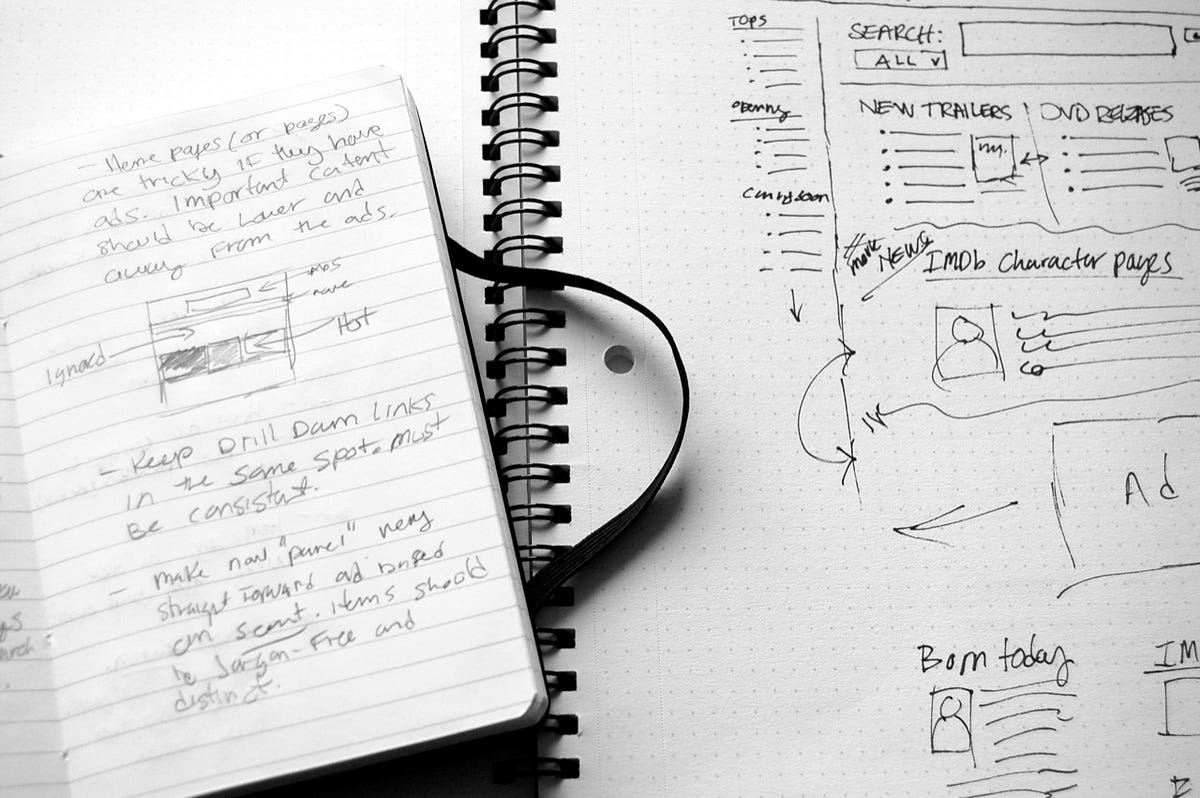 - Home pages (or pages)
are tricky if they have
ads. Important content
should be lower and
away from the ads.
ads
nav
Hot
Ignored
- Keep Drill Down Links
in the same spot. must
Be consistant.
- make nav "panel" very
straight forward and based
on scent. items should
be Jargon-Free and
distinct.
TOPS
opening
Coming soon
SEARCH:
ALL v
NEW TRAILERS
DVD RELEASES
more
NEWS
IMDb Character pages
Ad
Born today
IM